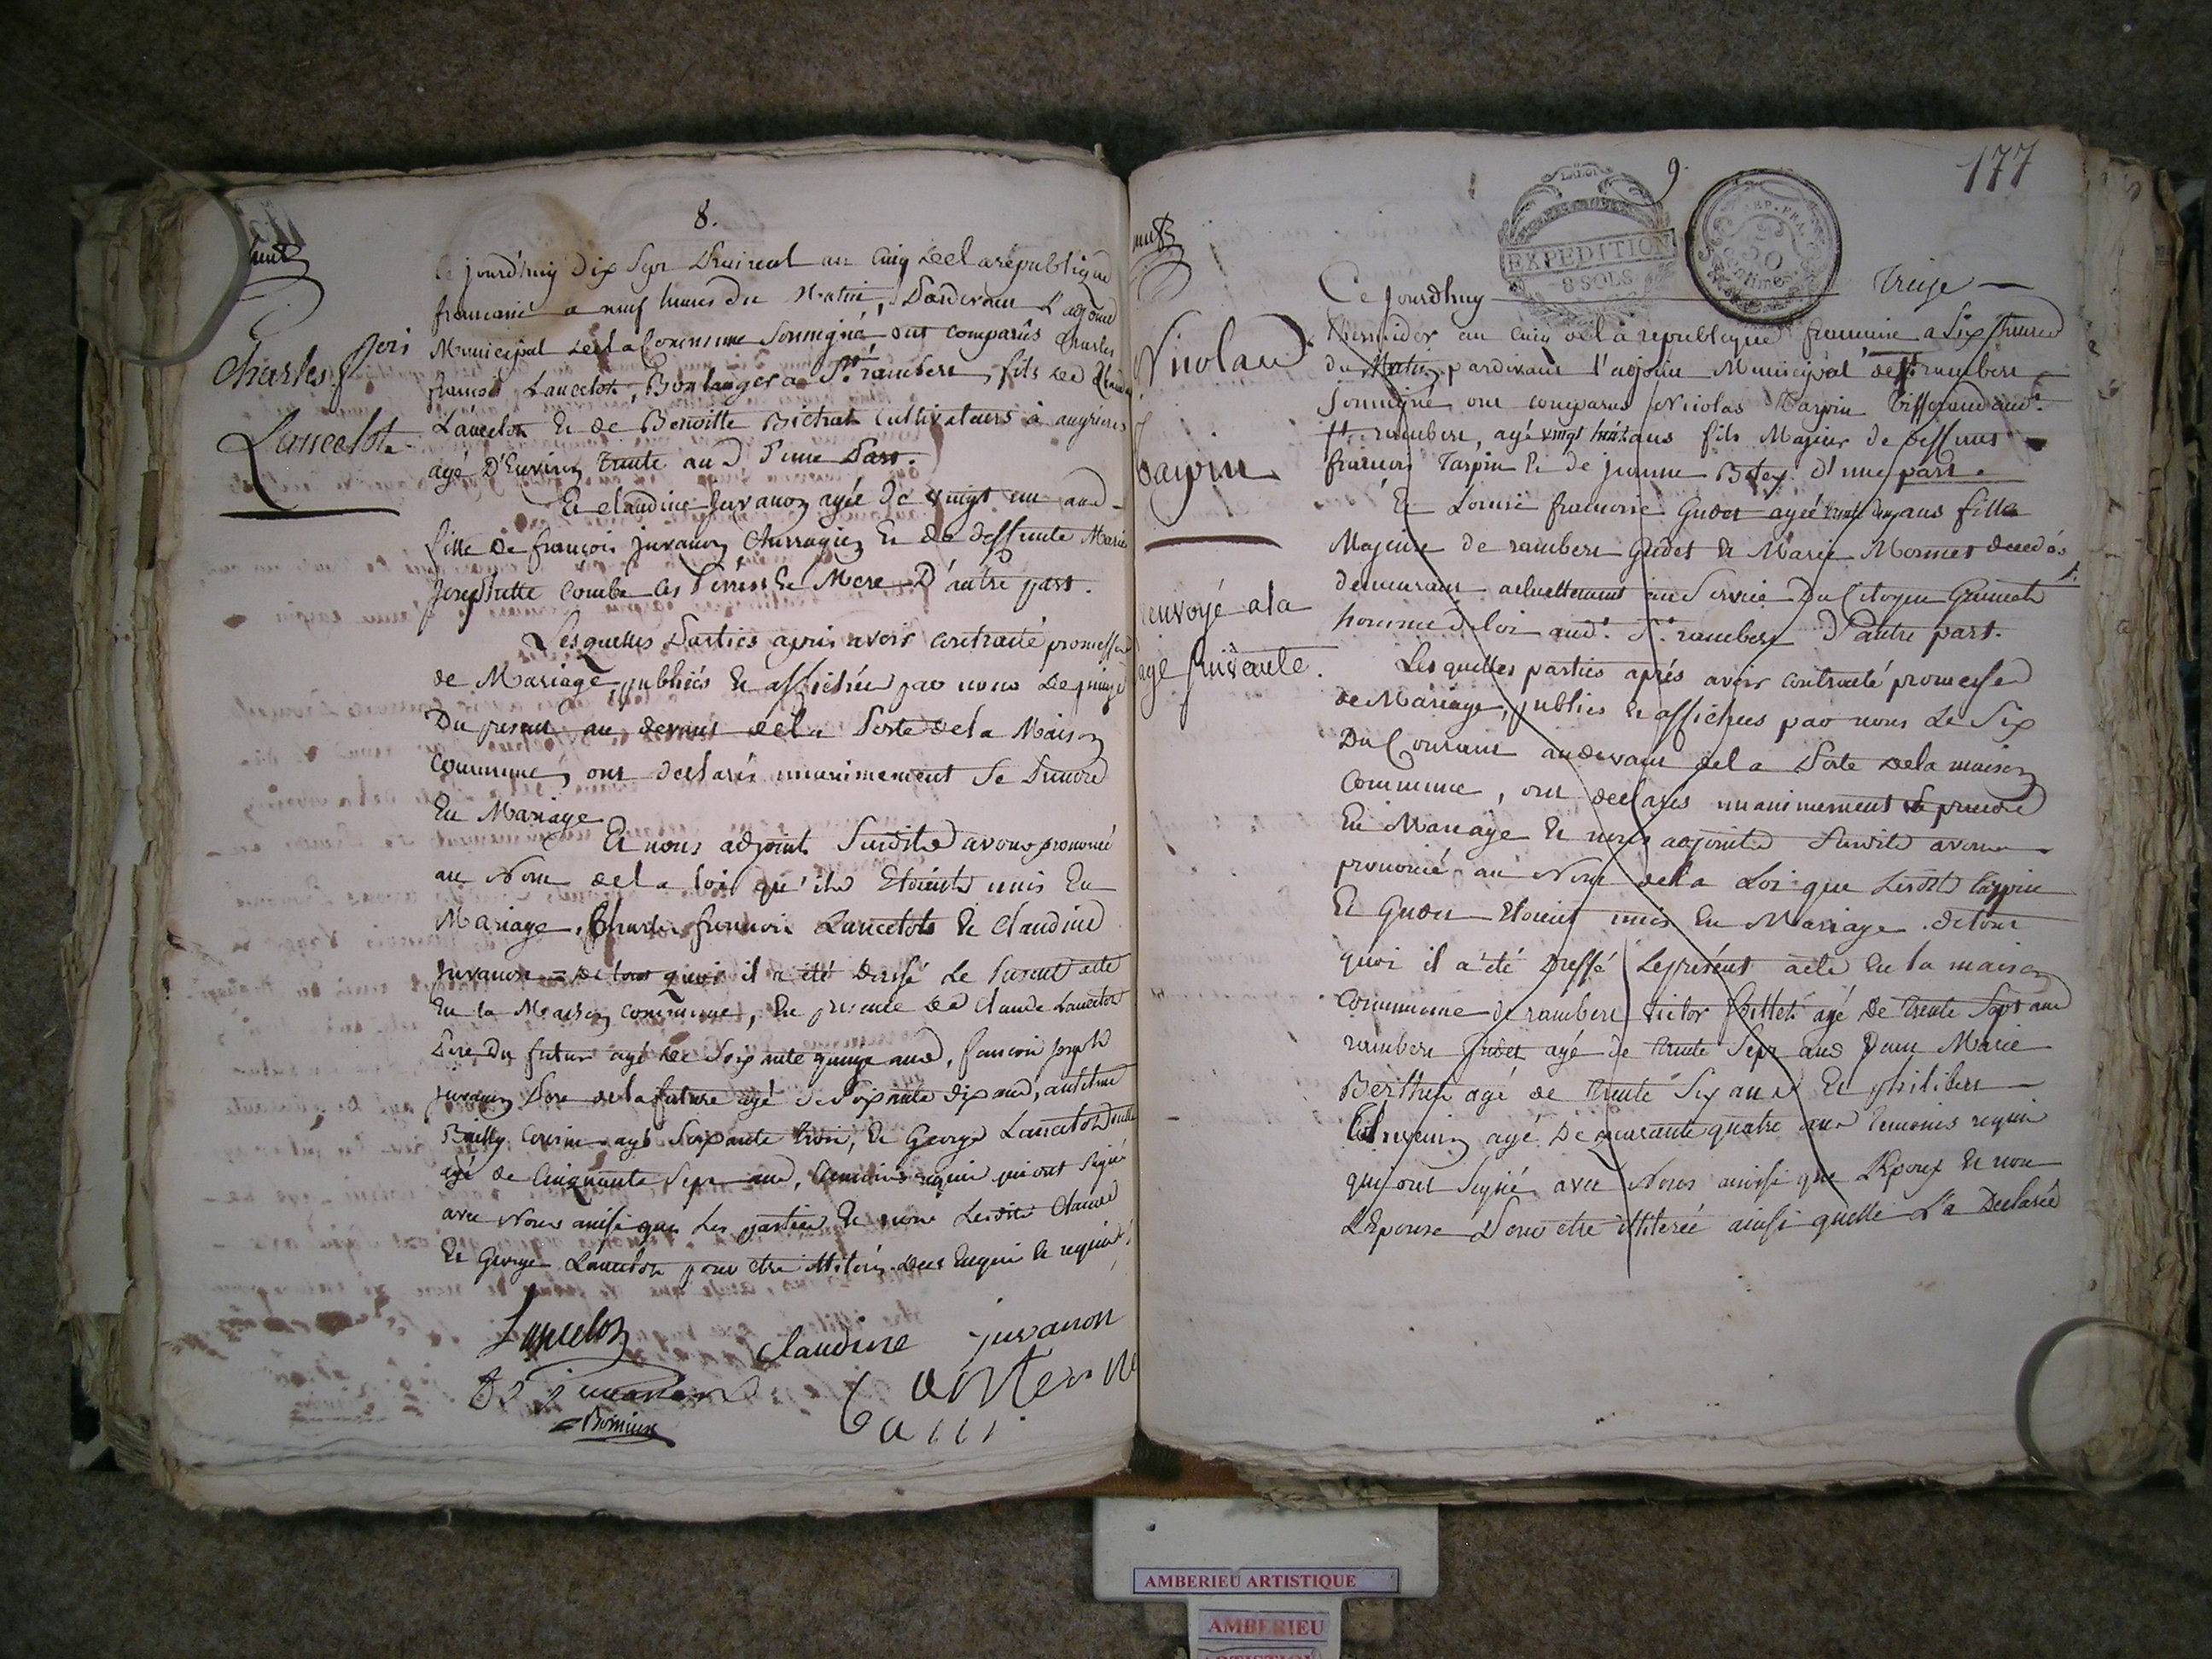 8.
Charles fcois
Lancelot
Ce jourd'huy dix Sept Prairial an Cinq de la république
francaise a neuf heures du Matin, Pardevant L'adjoint
Municipal de la Commune Soussigné ont comparûs Charles
francois Lancelot, Boulanger a St. rambert, fils de Claude
Lancelot et de Benoitte Bichat Cultivateurs à
agé D'Environ trente ans d'une Part.
Et claudine Juvanon agée de vingt un ans
fille de françois juvanon et de deffunte Marie
Josephette Combe ses Pere et Mere D'autre part.
Lesquelles Parties après avoir contracté promesses
de Mariage, publiées et affichées par nous Le quinze
Du présent au devant de la Porte de la Maison
Commune, ont declarés unanimement Se Prendre
En Mariage
Et nous adjoint Susdit avons prononcé
au Nom de la loi qu'ils Etoient unis En
Mariage. Charles francois Lancelot et Claudine
Juvanon = de tout quoi il a été Dressé Le Present acte
En la Maison commune, En présence de Claude Lancelot
Pere du futur agé de Soixante quinze ans, francois joseph
juvanon Pere de la future agé de Soixante dix ans, anthelme
Bailly Cousin agé Soixante trois, et George Lancelot
agé de Cinquante Sept ans, temoins requis qui ont Signé
avec Nous ainsi que Les parties et non Lesdits Claude
Et George Lancelot pour être illitérés de ce Enquis et requis
Lancelot claudine juvanon
juvanon antelme
bailli
9.
177
LA LOI
EXPEDITION
8 SOLS
REP. FRA.
50
Centimes
Nicolas
tarpin
renvoyé a la
page suivante.
Ce jourdhuy Treize
thermidor an cinq de la republique francaise a Six heures
du Matin, pardevant l'adjoint Municipal de St. rambert
Soussigné ont comparus Nicolas Tarpin tisserand audt.
St. rambert, agé vingt huit ans fils Majeur de deffunt
francois Tarpin et de jeanne Botex d'une part.
Et Louise francoise Gudet agée ans fille
Majeure de rambert Gudet et Marie Monnet decedés
demeurant actuellement au Service Du Citoyen
homme de loi audt. St. rambert D'autre part.
Lesquelles parties aprés avoir contracté promesses
de Mariage, publiées et affichées par nous Le Six
Du Courant audevant de la Porte de la maison
Commune, ont declarés unanimement Se prendre
En Mariage et nous adjoint Susdit avons
prononcé au Nom de la Loi que Lesdits tarpin
Et Gudet Etoient unis En Mariage. de tout
quoi il a été dressé Le présent acte En la maison
Commune de rambert victor agé De trente Sept ans
rambert Gudet agé de trente Sept ans Jean Marie
Berthet agé de trente Six ans et philibert
agé De quarante quatre ans temoins requis
qui ont Signé avec Nous ainsi que L'Epoux et non
L'Epouse Pour etre illiterée ainsi quelle L'a Declarée
AMBERIEU ARTISTIQUE
AMBERIEU
ARTISTIQUE